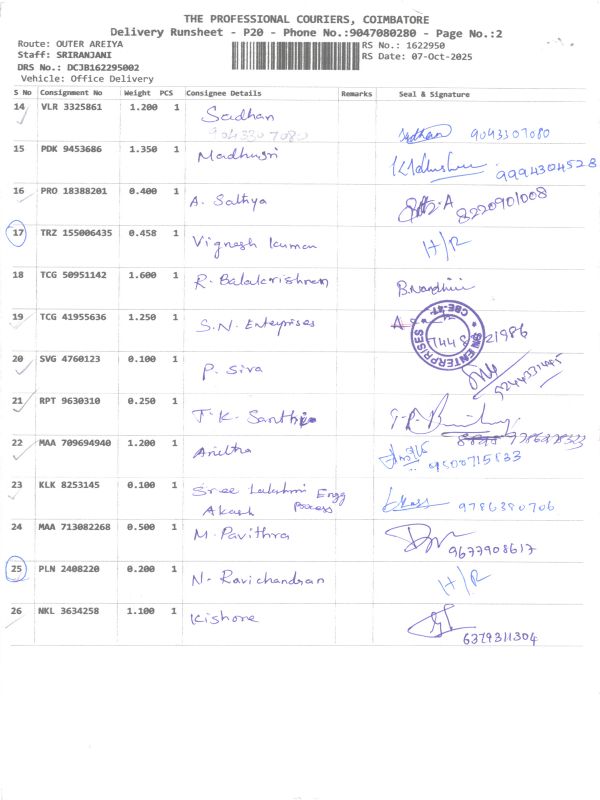 THE PROFESSIONAL COURIERS, COIMBATORE
Delivery Runsheet - P20 - Phone No.:9047080280 - Page No.:2
Route: OUTER AREIYA
RS No.: 1622950
Staff: SRIRANJANI
RS Date: 07-Oct-2025
DRS No.: DCJB162295002
Vehicle: Office Delivery
S No Consignment No Weight PCS Consignee Details Remarks Seal & Signature
14 VLR 3325861 1.200 1 Sadhan
9043307080 9043307080
15 PDK 9453686 1.350 1 Madhusri 9994304528
16 PRO 18388201 0.400 1 A. Sathya 8220901008
17 TRZ 155006435 0.458 1 Vignesh kumar H/R
18 TCG 50951142 1.600 1 R. Balakrishnan B.Nandhini
19 TCG 41955636 1.250 1 S.N. Enteprises SN ENTERPRISES CBE-47
20 SVG 4760123 0.100 1 P. Siva
21 RPT 9630310 0.250 1 T.K. Santhi
22 MAA 709694940 1.200 1 Anitha
23 KLK 8253145 0.100 1 Sree Lakshmi Engg
Akash Process 9786380706
24 MAA 713082268 0.500 1 M. Pavithra 9677908617
25 PLN 2408220 0.200 1 N. Ravichandran H/R
26 NKL 3634258 1.100 1 Kishore 6379311304